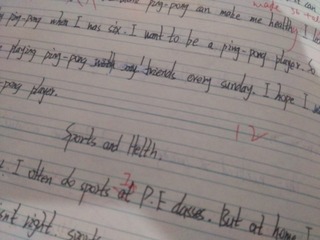 ping-pong can make me healthy
ping-pong when I was six. I want to be a ping-pong player. So
playing ping-pong with my friends every sunday. I hope I
-pong player.
12
Sports and Helth.
I often do sports at P.E classes. But at home I
isn't right. sports